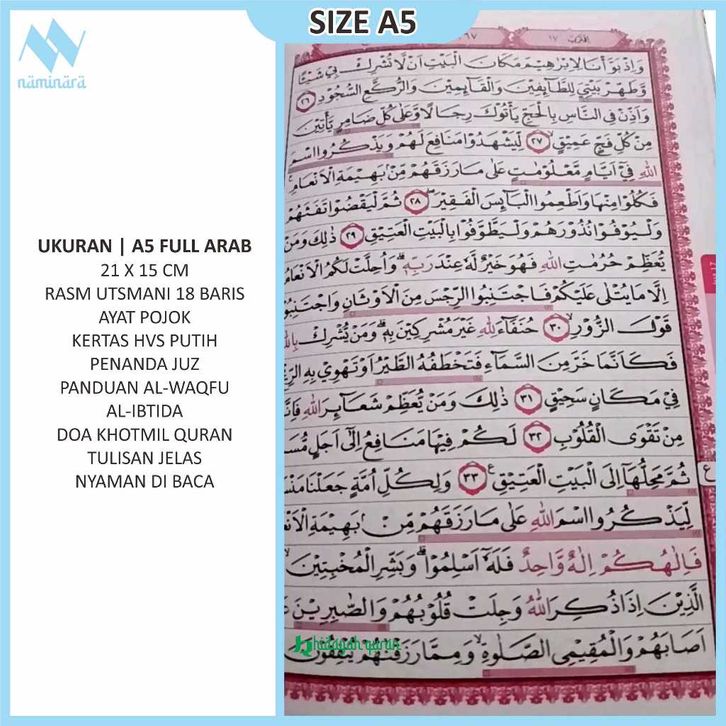 SIZE A5
näminärä
UKURAN | A5 FULL ARAB
21 X 15 CM
RASM UTSMANI 18 BARIS
AYAT POJOK
KERTAS HVS PUTIH
PENANDA JUZ
PANDUAN AL-WAQFU
AL-IBTIDA
DOA KHOTMIL QURAN
TULISAN JELAS
NYAMAN DI BACA
اقترب ١٧
وَاِذْ بَوَّأْنَا لِاِبْرٰهِيْمَ مَكَانَ الْبَيْتِ اَنْ لَّا تُشْرِكْ بِيْ شَيْـًٔا
وَّطَهِّرْ بَيْتِيَ لِلطَّاۤىِٕفِيْنَ وَالْقَاۤىِٕمِيْنَ وَالرُّكَّعِ السُّجُوْدِ ٢٦
وَاَذِّنْ فِى النَّاسِ بِالْحَجِّ يَأْتُوْكَ رِجَالًا وَّعَلٰى كُلِّ ضَامِرٍ يَّأْتِيْنَ
مِنْ كُلِّ فَجٍّ عَمِيْقٍ ٢٧ لِّيَشْهَدُوْا مَنَافِعَ لَهُمْ وَيَذْكُرُوا اسْمَ
اللّٰهِ فِيْٓ اَيَّامٍ مَّعْلُوْمٰتٍ عَلٰى مَا رَزَقَهُمْ مِّنْۢ بَهِيْمَةِ الْاَنْعَامِ
فَكُلُوْا مِنْهَا وَاَطْعِمُوا الْبَاۤىِٕسَ الْفَقِيْرَ ٢٨ ثُمَّ لْيَقْضُوْا تَفَثَهُمْ
وَلْيُوْفُوْا نُذُوْرَهُمْ وَلْيَطَّوَّفُوْا بِالْبَيْتِ الْعَتِيْقِ ٢٩ ذٰلِكَ وَمَنْ
يُّعَظِّمْ حُرُمٰتِ اللّٰهِ فَهُوَ خَيْرٌ لَّهٗ عِنْدَ رَبِّهٖۗ وَاُحِلَّتْ لَكُمُ الْاَنْعَا
اِلَّا مَا يُتْلٰى عَلَيْكُمْ فَاجْتَنِبُوا الرِّجْسَ مِنَ الْاَوْثَانِ وَاجْتَنِبُوْا
قَوْلَ الزُّوْرِ ٣٠ حُنَفَاۤءَ لِلّٰهِ غَيْرَ مُشْرِكِيْنَ بِهٖۗ وَمَنْ يُّشْرِكْ بِاللّٰهِ
فَكَاَنَّمَا خَرَّ مِنَ السَّمَاۤءِ فَتَخْطَفُهُ الطَّيْرُ اَوْ تَهْوِيْ بِهِ
فِيْ مَكَانٍ سَحِيْقٍ ٣١ ذٰلِكَ وَمَنْ يُّعَظِّمْ شَعَاۤىِٕرَ اللّٰهِ
مِنْ تَقْوَى الْقُلُوْبِ ٣٢ لَكُمْ فِيْهَا مَنَافِعُ اِلٰٓى اَجَلٍ
ثُمَّ مَحِلُّهَآ اِلَى الْبَيْتِ الْعَتِيْقِ ٣٣ وَلِكُلِّ اُمَّةٍ جَعَلْنَا
لِّيَذْكُرُوا اسْمَ اللّٰهِ عَلٰى مَا رَزَقَهُمْ مِّنْۢ بَهِيْمَةِ
فَاِلٰهُكُمْ اِلٰهٌ وَّاحِدٌ فَلَهٗٓ اَسْلِمُوْاۗ وَبَشِّرِ الْمُخْبِتِيْنَ
الَّذِيْنَ اِذَا ذُكِرَ اللّٰهُ وَجِلَتْ قُلُوْبُهُمْ وَالصّٰبِرِيْنَ
اَصَابَهُمْ وَالْمُقِيْمِى الصَّلٰوةِۙ وَمِمَّا رَزَقْنٰهُمْ يُنْفِقُوْنَ